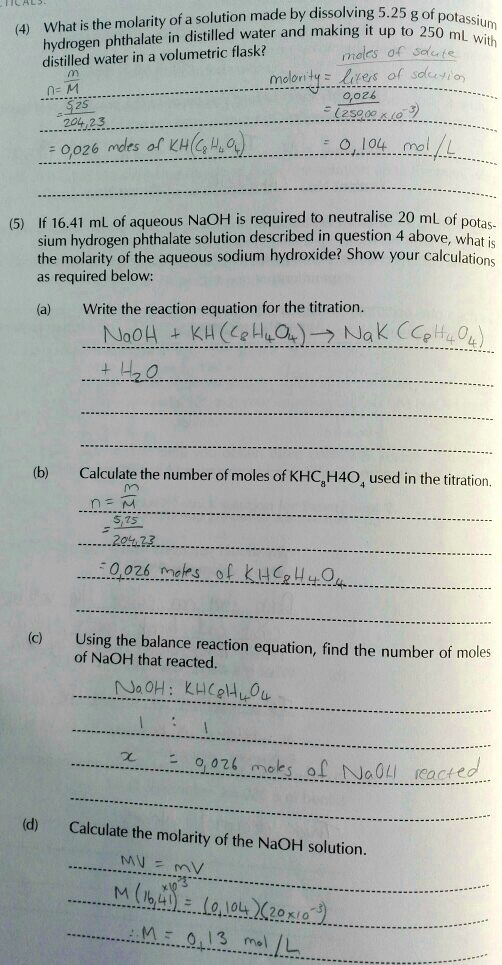 (4) What is the molarity of a solution made by dissolving 5.25 g of potassium
hydrogen phthalate in distilled water and making it up to 250 mL with
distilled water in a volumetric flask?
n = m/M
= 5,25/204,23
= 0,026 moles of KH(C₈H₄O₄)
molarity = moles of solute/liters of solution
= 0,026/(250,00 x 10⁻³)
= 0,104 mol/L
(5) If 16.41 mL of aqueous NaOH is required to neutralise 20 mL of potas-
sium hydrogen phthalate solution described in question 4 above, what is
the molarity of the aqueous sodium hydroxide? Show your calculations
as required below:
(a) Write the reaction equation for the titration.
NaOH + KH(C₈H₄O₄) → NaK(C₈H₄O₄)
+ H₂O
(b) Calculate the number of moles of KHC₈H4O₄ used in the titration.
n = m/M
= 5,25/204,23
= 0,026 moles of KHC₈H₄O₄
(c) Using the balance reaction equation, find the number of moles
of NaOH that reacted.
NaOH : KHC₈H₄O₄
1 : 1
x = 0,026 moles of NaOH reacted
(d) Calculate the molarity of the NaOH solution.
MV = mV
M(16,41)x10⁻³ = (0,104)(20x10⁻³)
∴ M = 0,13 mol/L